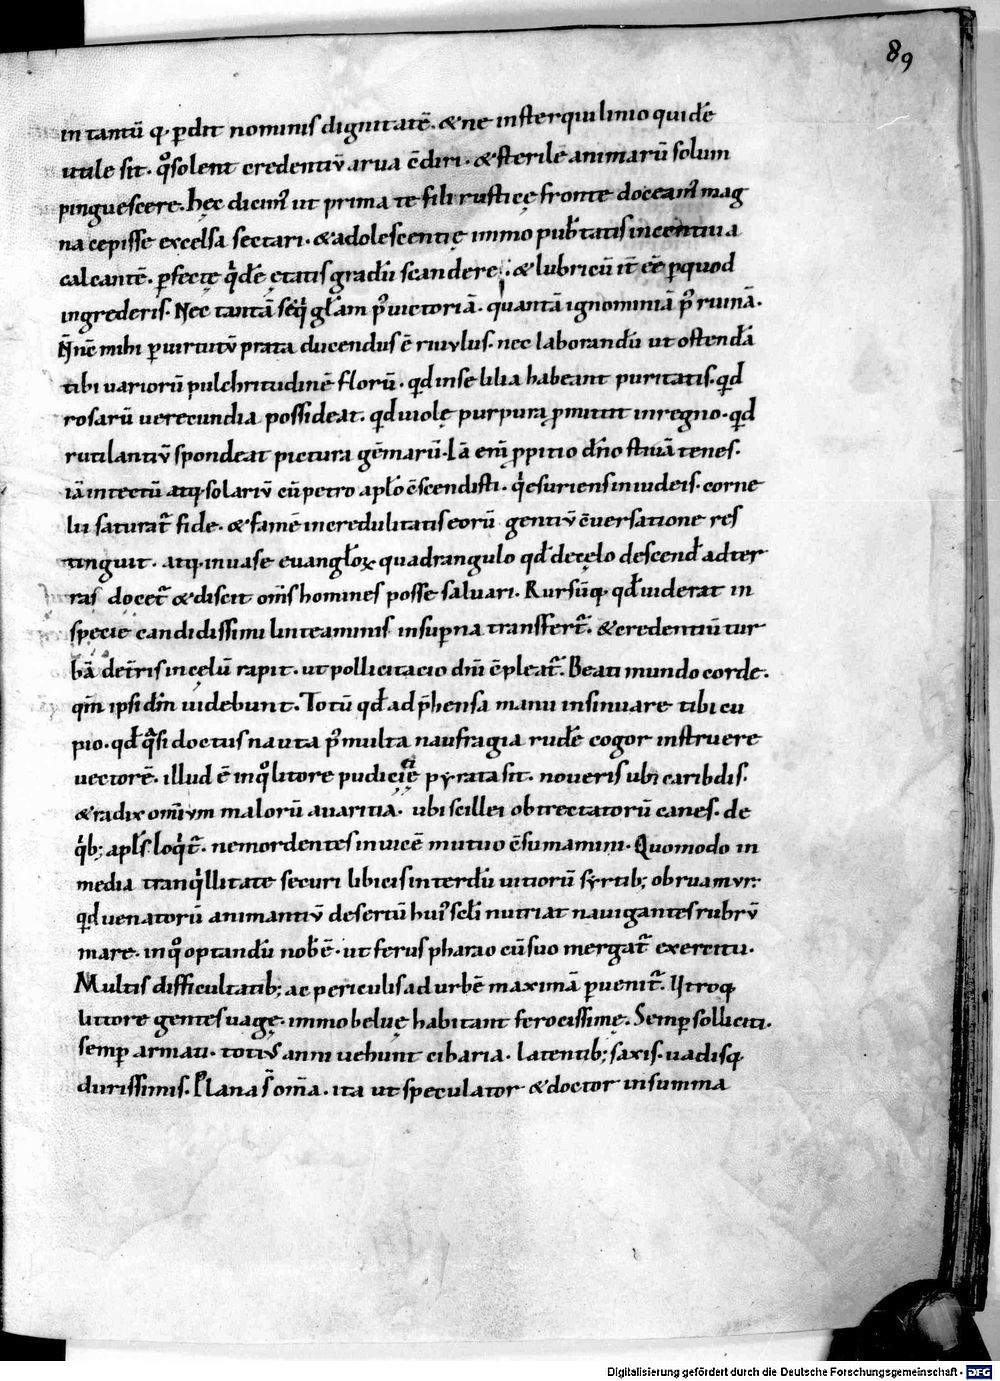 89
in tantū q· ꝑdit nominis dignitatē. & ne in sterquilinio quidē
utile sit. quo solent credentiū arua cōdiri. & sterile animarū solum
pinguescere. hęc dicimꝰ ut prima te fili rusticę fronte doceamꝰ mag
na cepisse excelsa sectari. & adolescentię immo pub̄tatis incentiua
calcantē. ꝑfectę qͥdē ętatis gradū scandere. & lubricū it̄ eē ꝑ quod
ingrederis. Nec tantā seqͥ gl̄am pꝰ uictoriā. quantā ignominiā pꝰ ruinā.
N̄ nc̄ mihi ꝑ uirtutū prata ducendus ē riuulus. nec laborandū ut ostendā
tibi uariorū pulchritudinē florū. qd in se lilia habeant puritatis. qd
rosarū uerecundia possideat. qd uiolę purpura ꝓmittit in regno. qd
rutilantiū spondeat pictura gēmarū. Iā eni ꝓpitio dn̄o stiuā tenes.
iā in tectū atq· solariū cū petro apl̄o c̄scendisti. qͥ esuriens in iudeis. corne
lii saturat᷑ fide. & famē incredulitatis eorū gentiū c̄uersatione res
tinguit. atq· in uase euangl̄oꝝ quadrangulo qd̄ de cęlo descend̄ ad ter
ras docet᷑ & discit om̄s homines posse saluari. Rursūq· qd̄ uiderat in
specie candidissimi linteaminis in suꝑna transfert᷑. & credentiū tur
bā de tr̄ris in cęlū rapit. ut pollicitacio dn̄i c̄pleat᷑. Beati mundo corde.
qm̄ ipsi dm̄ uidebunt. Totū qd̄ adp̄hensa manu insinuare tibi cu
pio. qd̄ qͣsi doctus nauta pꝰ multa naufragia rudē cogor instruere
uectorē. illud ē in qͦ litore pudicitię pyrata sit. noueris ubi caribdis.
& radix omīum malorū auaritia. ubi scillei obtrectatorū canes. de
qͥb; apl̄s loqͥt᷑. ne mordentes inuicē mutuo c̄sumamini. Quomodo in
media tranqͥllitate securi libicis interdū uitiorū syrtib; obruamur.
qd uenatorū animantiū desertū huiꝰ scl̄i nutriat nauigantes rubrū
mare. in qͦ optandū nob̄ ē. ut ferus pharao cū suo mergat᷑ exercitu.
Multis difficultatib; ac periculis ad urbē maximā ꝑuenit᷑. Utroq·
littore gentes uagę. immo beluę habitant ferocissimę. Semꝑ solliciti.
semꝑ armati. totiꝰ anni uehunt cibaria. latentib; saxis. uadisq·
durissimis. Plana s̄ om̄a. ita ut speculator & doctor in summa
Digitalisierung gefördert durch die Deutsche Forschungsgemeinschaft - DFG